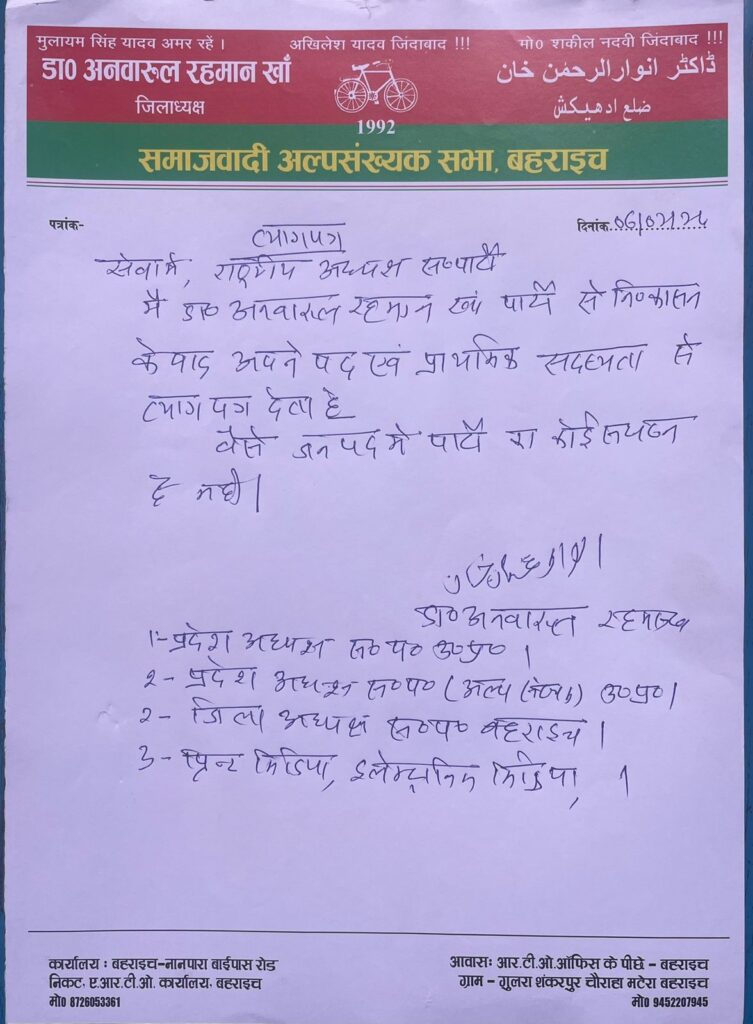 मुलायम सिंह यादव अमर रहें । अखिलेश यादव जिंदाबाद !!! मो0 शकील नदवी जिंदाबाद !!!
डा0 अनवारुल रहमान खाँ ڈاکٹر انوارالرحمٰن خان
जिलाध्यक्ष ضلع ادھیکش
1992
समाजवादी अल्पसंख्यक सभा, बहराइच
पत्रांक- दिनांक
त्यागपत्र
सेवामे, राष्ट्रीय अध्यक्ष स०पार्टी
मै डा० अनवारुल रहमान खां पार्टी से निष्कासन
के बाद अपने पद एवं प्राथमिक सदस्यता से
त्याग पत्र देता है
वैसे जनपद मे पार्टी का कोई
है नही।
डा० अनवारुल रहमान
1- प्रदेश अध्यक्ष स० प० उ०प्र० ।
२- प्रदेश अध्यक्ष स०प० ( उ०प्र० ।
२- जिला अध्यक्ष स०प० बहराइच ।
3- प्रिन्ट मिडिया, इलेक्ट्रानिक मिडिया, ।
कार्यालय : बहराइच-नानपारा बाईपास रोड
निकट, ए.आर.टी.ओ. कार्यालय, बहराइच
मो0 8726053361
आवासः आर.टी.ओ.ऑफिस के पीछे - बहराइच
ग्राम - गुलरा शंकरपुर चौराहा मटेरा बहराइच
मो0 9452207945